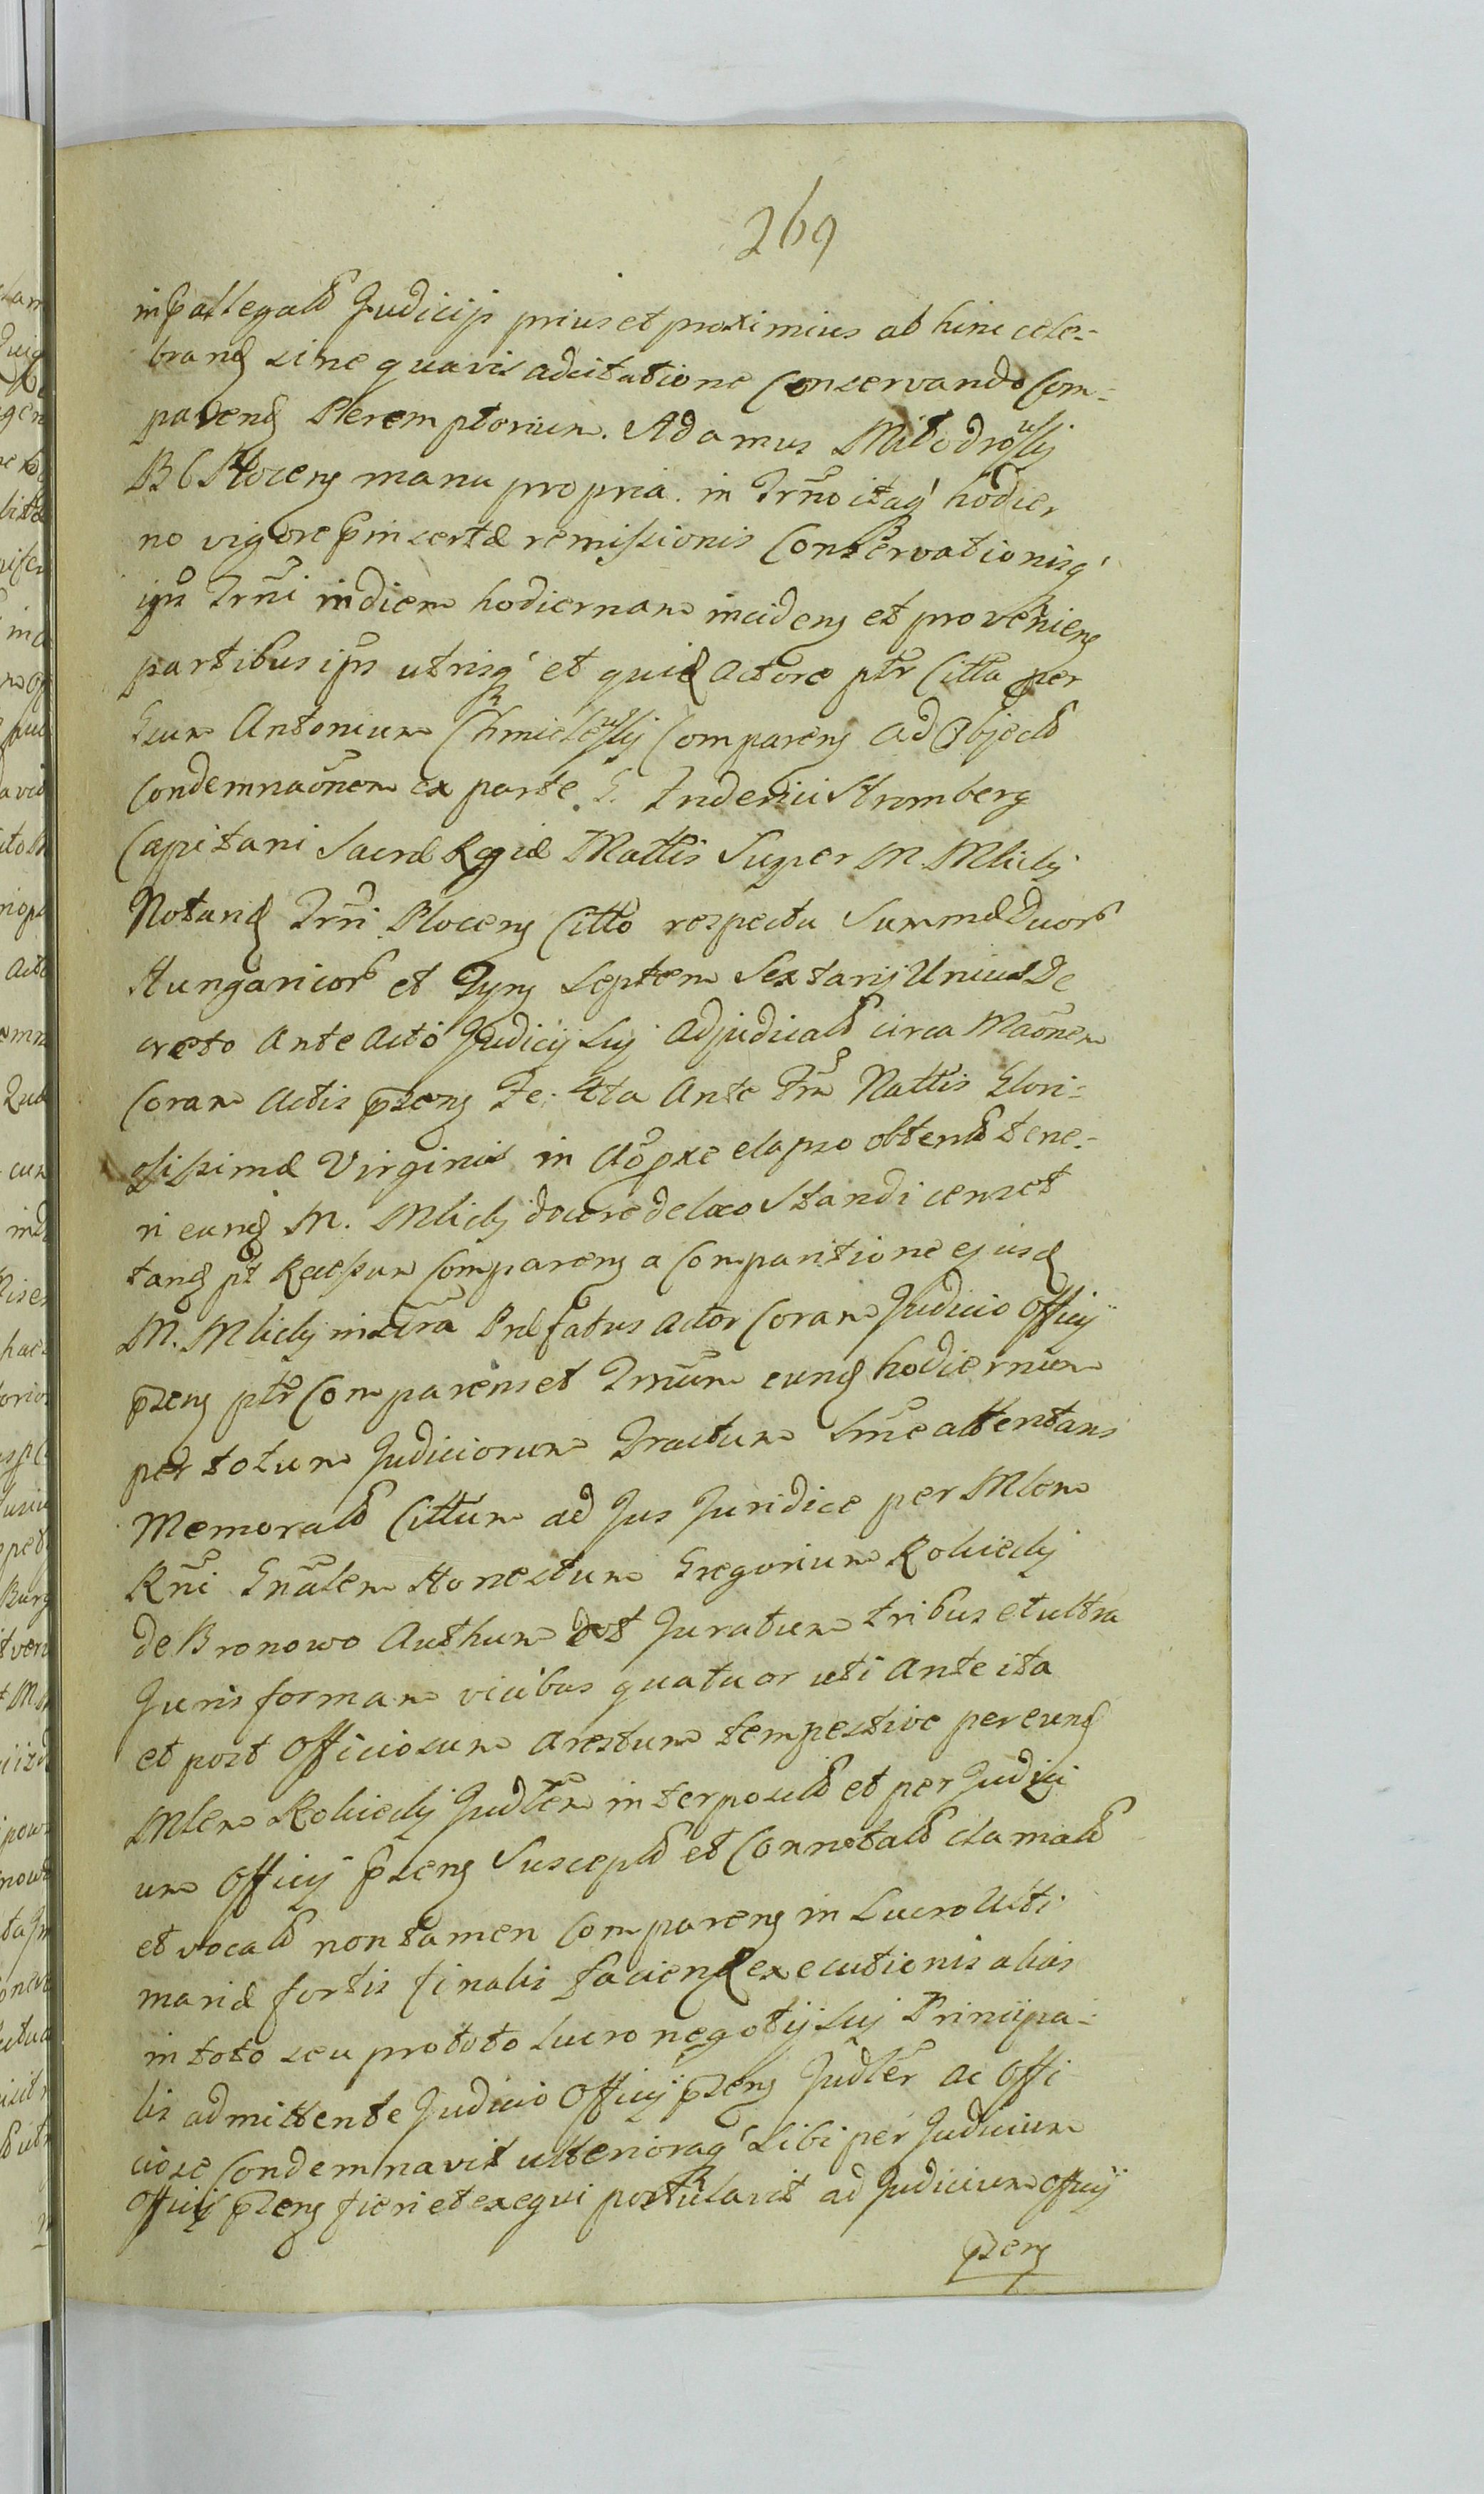 269
in pallegatis Judicijs prius et proximius ab hinc cele-
brand sine quavis adcitatione Conservando Com-
parend Peremptorium. Adamus Milodrowskj
BC Plocens manu propria. in Trno itaq hodier
no vigore p insertæ remissionis Conservationisq
ijus Trni in diem hodiernam incidens et proveniens
partibus ips utrisq et quid Actore ptr Citta per
Gsum Antonium Chmielewskj Comparens ad Objectam
Condemnaonem ex parte G. Stromberg
Capitani Sacræ Regiæ Mattis Super M. Mlickj
Notarid Trri Plocens Citto respectu Summæ Duor
Hungaricor et Tynf Septem Sextarij Unius De
creto Ante Acto Judicij Suj Adjudicatam circa Maonem
Coram Actis pzens Fe: 4ta Ante Fm Nattis Glori-
osissimæ Virginis in Ao pxe elapso obtentam tene-
ri eund M. Mlickj docere de loco Standi censet
tand pt Recessum Comparens a Comparitione ejusd
M. Mlickj Præfatus Actor Coram Judicio Officij
pzens ptr Comparens et Trnum eund hodiernum
per totum Judiciorum Tractum attentans
Memoratam Cittum ad Jus Juridice per Mlem
Rni Gnalem Honestum Gregorium Rokickj
de Bronowo Authum Juratum tribus et ultra
Juris formam vicibus quatuor uti Ante ita
et post Officiosum Arestum tempestive per eund
Mlem Rokickj Judler interpositam et per Judici
um Officij pzens Susceptam et Connotatam clamatam
et vocatam non tamen Comparens in Lucro Ulti
mariæ fortis finalis faciend executionis alias
in toto seu pro toto Lucro negotij Suj Principa-
lis admittente Judicio Officij pzens Judler ac Offi
ciose Condemnavit ulterioraq Sibi per Judicium
Officij pzens fieri et exequi postulavit ad Judicium Officij
pzens